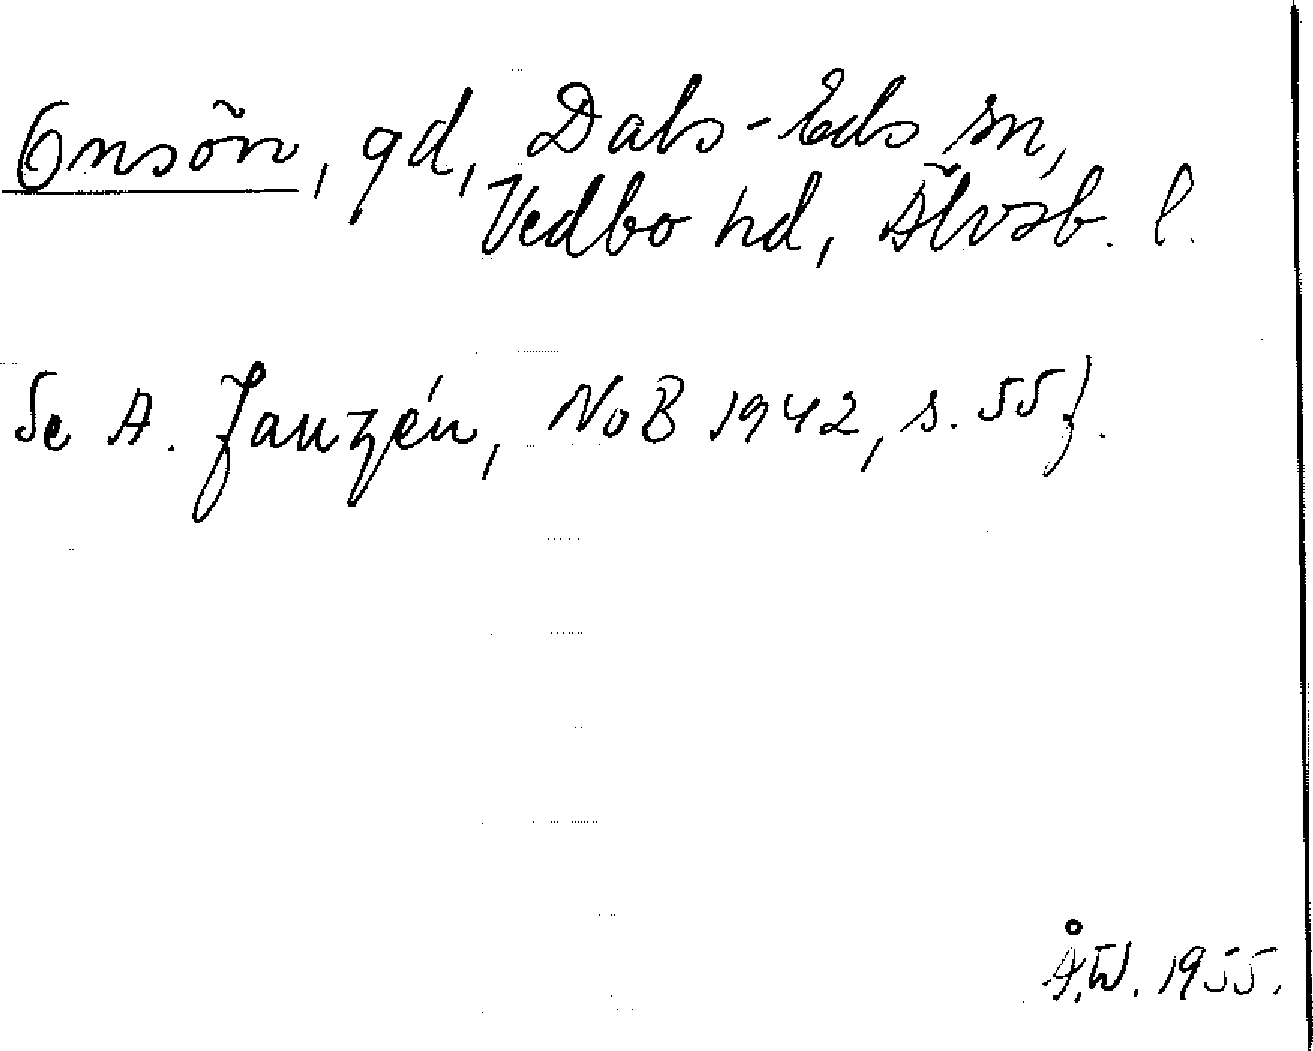 Onsön, gd, Dals-Eds sn,
Vedbo hd, Älvsb. l.
Se A. Janzén, NoB 1942, s. 55 f.
Å.W. 1955.